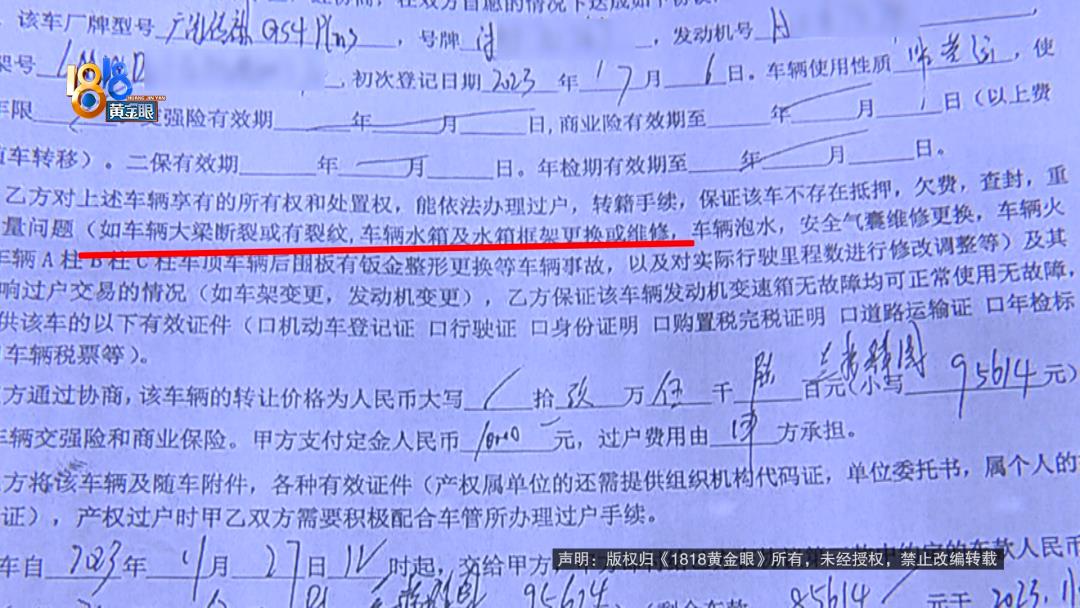 协商，在双方自愿的情况下达成如下协议
该车厂牌型号 广汽传祺GS4 Plus ，号牌 ，发动机号
架号 ，初次登记日期 2023 年 7 月 6 日。车辆使用性质 ，使
1818
HUANG JIN YAN
黄金眼
年限 交强险有效期 年 月 日，商业险有效期至 年 月 日（以上费
随车转移）。二保有效期 年 月 日。年检期有效期至 年 月 日。
乙方对上述车辆享有的所有权和处置权，能依法办理过户，转籍手续，保证该车不存在抵押，欠费，查封，重
量问题（如车辆大梁断裂或有裂纹,车辆水箱及水箱框架更换或维修，车辆泡水，安全气囊维修更换，车辆火
车辆A柱B柱C柱车顶车辆后围板有钣金整形更换等车辆事故，以及对实际行驶里程数进行修改调整等）及其
响过户交易的情况（如车架变更，发动机变更），乙方保证该车辆发动机变速箱无故障均可正常使用无故障，
供该车的以下有效证件（口机动车登记证 口行驶证 口身份证明 口购置税完税证明 口道路运输证 口年检标
车辆税票等）。
方通过协商，该车辆的转让价格为人民币大写 拾 玖 万 伍 千 陆 百元（小写 95614 元）
车辆交强险和商业保险。甲方支付定金人民币 10000 元，过户费用由 甲 方承担。
方将该车辆及随车附件，各种有效证件（产权属单位的还需提供组织机构代码证，单位委托书，属个人的
证），产权过户时甲乙双方需要积极配合车管所办理过户手续。
车自 2023 年 11 月 27 日 时起，交给甲方
声明：版权归《1818黄金眼》所有，未经授权，禁止改编转载
车款人民币
95614 剩余车款 85614 元于 2023.11